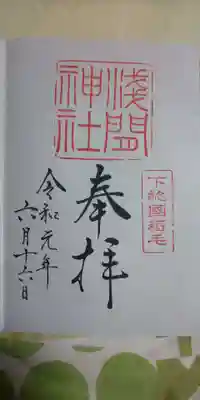 淺間神社
下総國稲毛
奉拝
令和元年
六月十六日